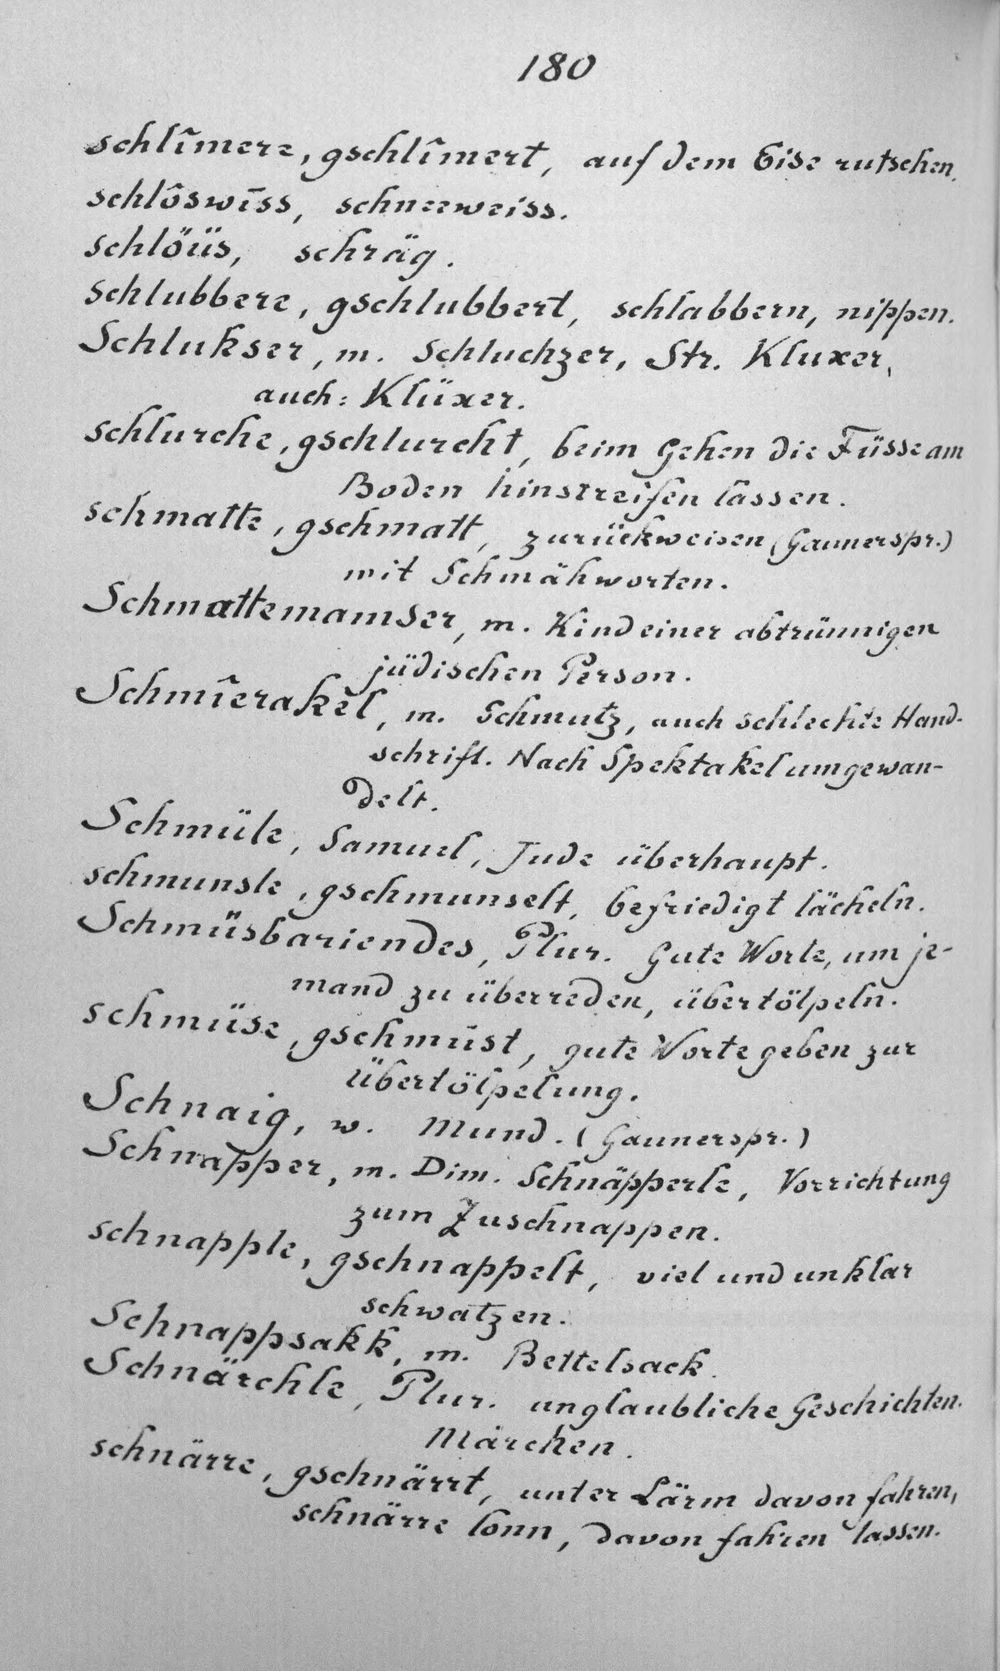 180
schlîmere, gschlîmert, auf dem Eise rutschen.
schlôswīss, schneeweiss.
schlöüs, schräg.
schlubbere, gschlubbert, schlabbern, nippen.
Schlukser, m. Schluchzer, Str. Kluxer,
auch: Klüxer.
schlurche, gschlurcht, beim Gehen die Füsse am
Boden hinstreifen lassen.
schmatte, gschmatt, zurückweisen (Gaunerspr.)
mit Schmähworten.
Schmattemamser, m. Kind einer abtrünnigen
jüdischen Person.
Schmîerakel, m. Schmutz, auch schlechte Hand-
schrift. Nach Spektakel umgewan-
delt.
Schmüle, Samuel, Jude überhaupt.
schmunsle, gschmunselt, befriedigt lächeln.
Schmüsbariendes, Plur. Gute Worte, um je-
mand zu überreden, übertölpeln.
schmüse, gschmüst, gute Worte geben zur
Übertölpelung.
Schnaig, w. Mund. (Gaunerspr.)
Schnapper, m. Dim. Schnäpperle, Vorrichtung
zum Zuschnappen.
schnapple, gschnappelt, viel und unklar
schwatzen.
Schnappsakk, m. Bettelsack.
Schnärchle, Plur. unglaubliche Geschichten.
Märchen.
schnärre, gschnärrt, unter Lärm davon fahren,
schnärre lonn, davon fahren lassen.